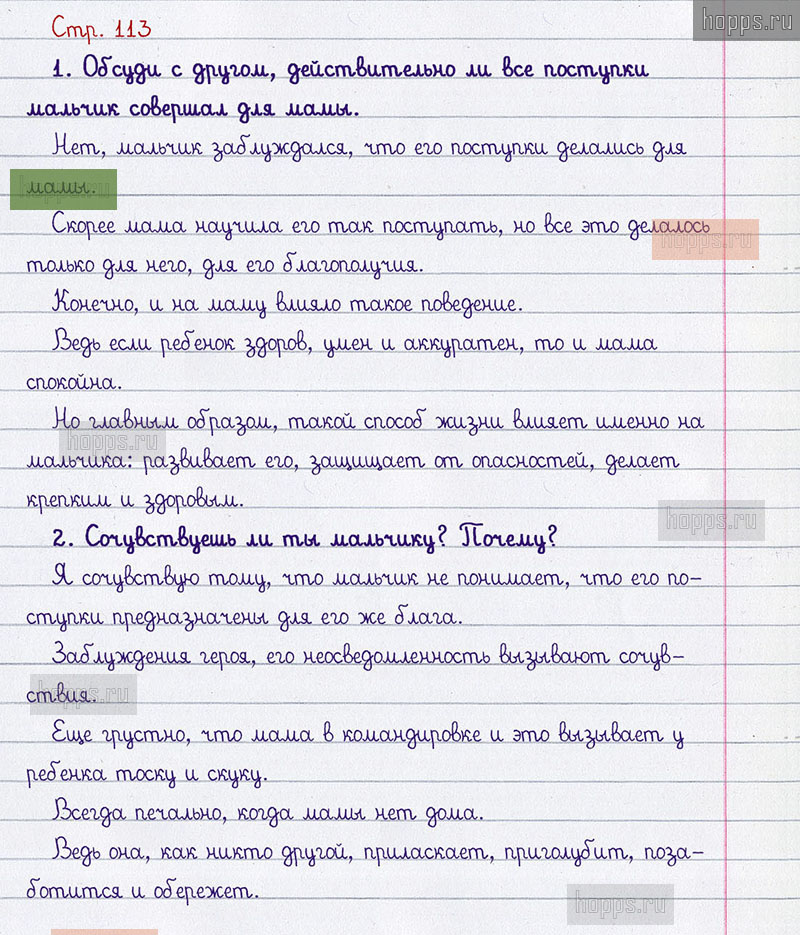 hopps.ru
Стр. 113
1. Обсуди с другом, действительно ли все поступки
мальчик совершал для мамы.
Нет, мальчик заблуждался, что его поступки делались для
мамы.
Скорее мама научила его так поступать, но все это делалось
hopps.ru
только для него, для его благополучия.
Конечно, и на маму влияло такое поведение.
Ведь если ребенок здоров, умен и аккуратен, то и мама
спокойна.
Но главным образом, такой способ жизни влияет именно на
hopps.ru
мальчика: развивает его, защищает от опасностей, делает
крепким и здоровым.
hopps.ru
2. Сочувствуешь ли ты мальчику? Почему?
Я сочувствую тому, что мальчик не понимает, что его по-
ступки предназначены для его же блага.
Заблуждения героя, его неосведомленность вызывают сочув-
ствия.
hopps.ru
Еще грустно, что мама в командировке и это вызывает у
ребенка тоску и скуку.
Всегда печально, когда мамы нет дома.
Ведь она, как никто другой, приласкает, приголубит, поза-
ботится и обережет.
hopps.ru